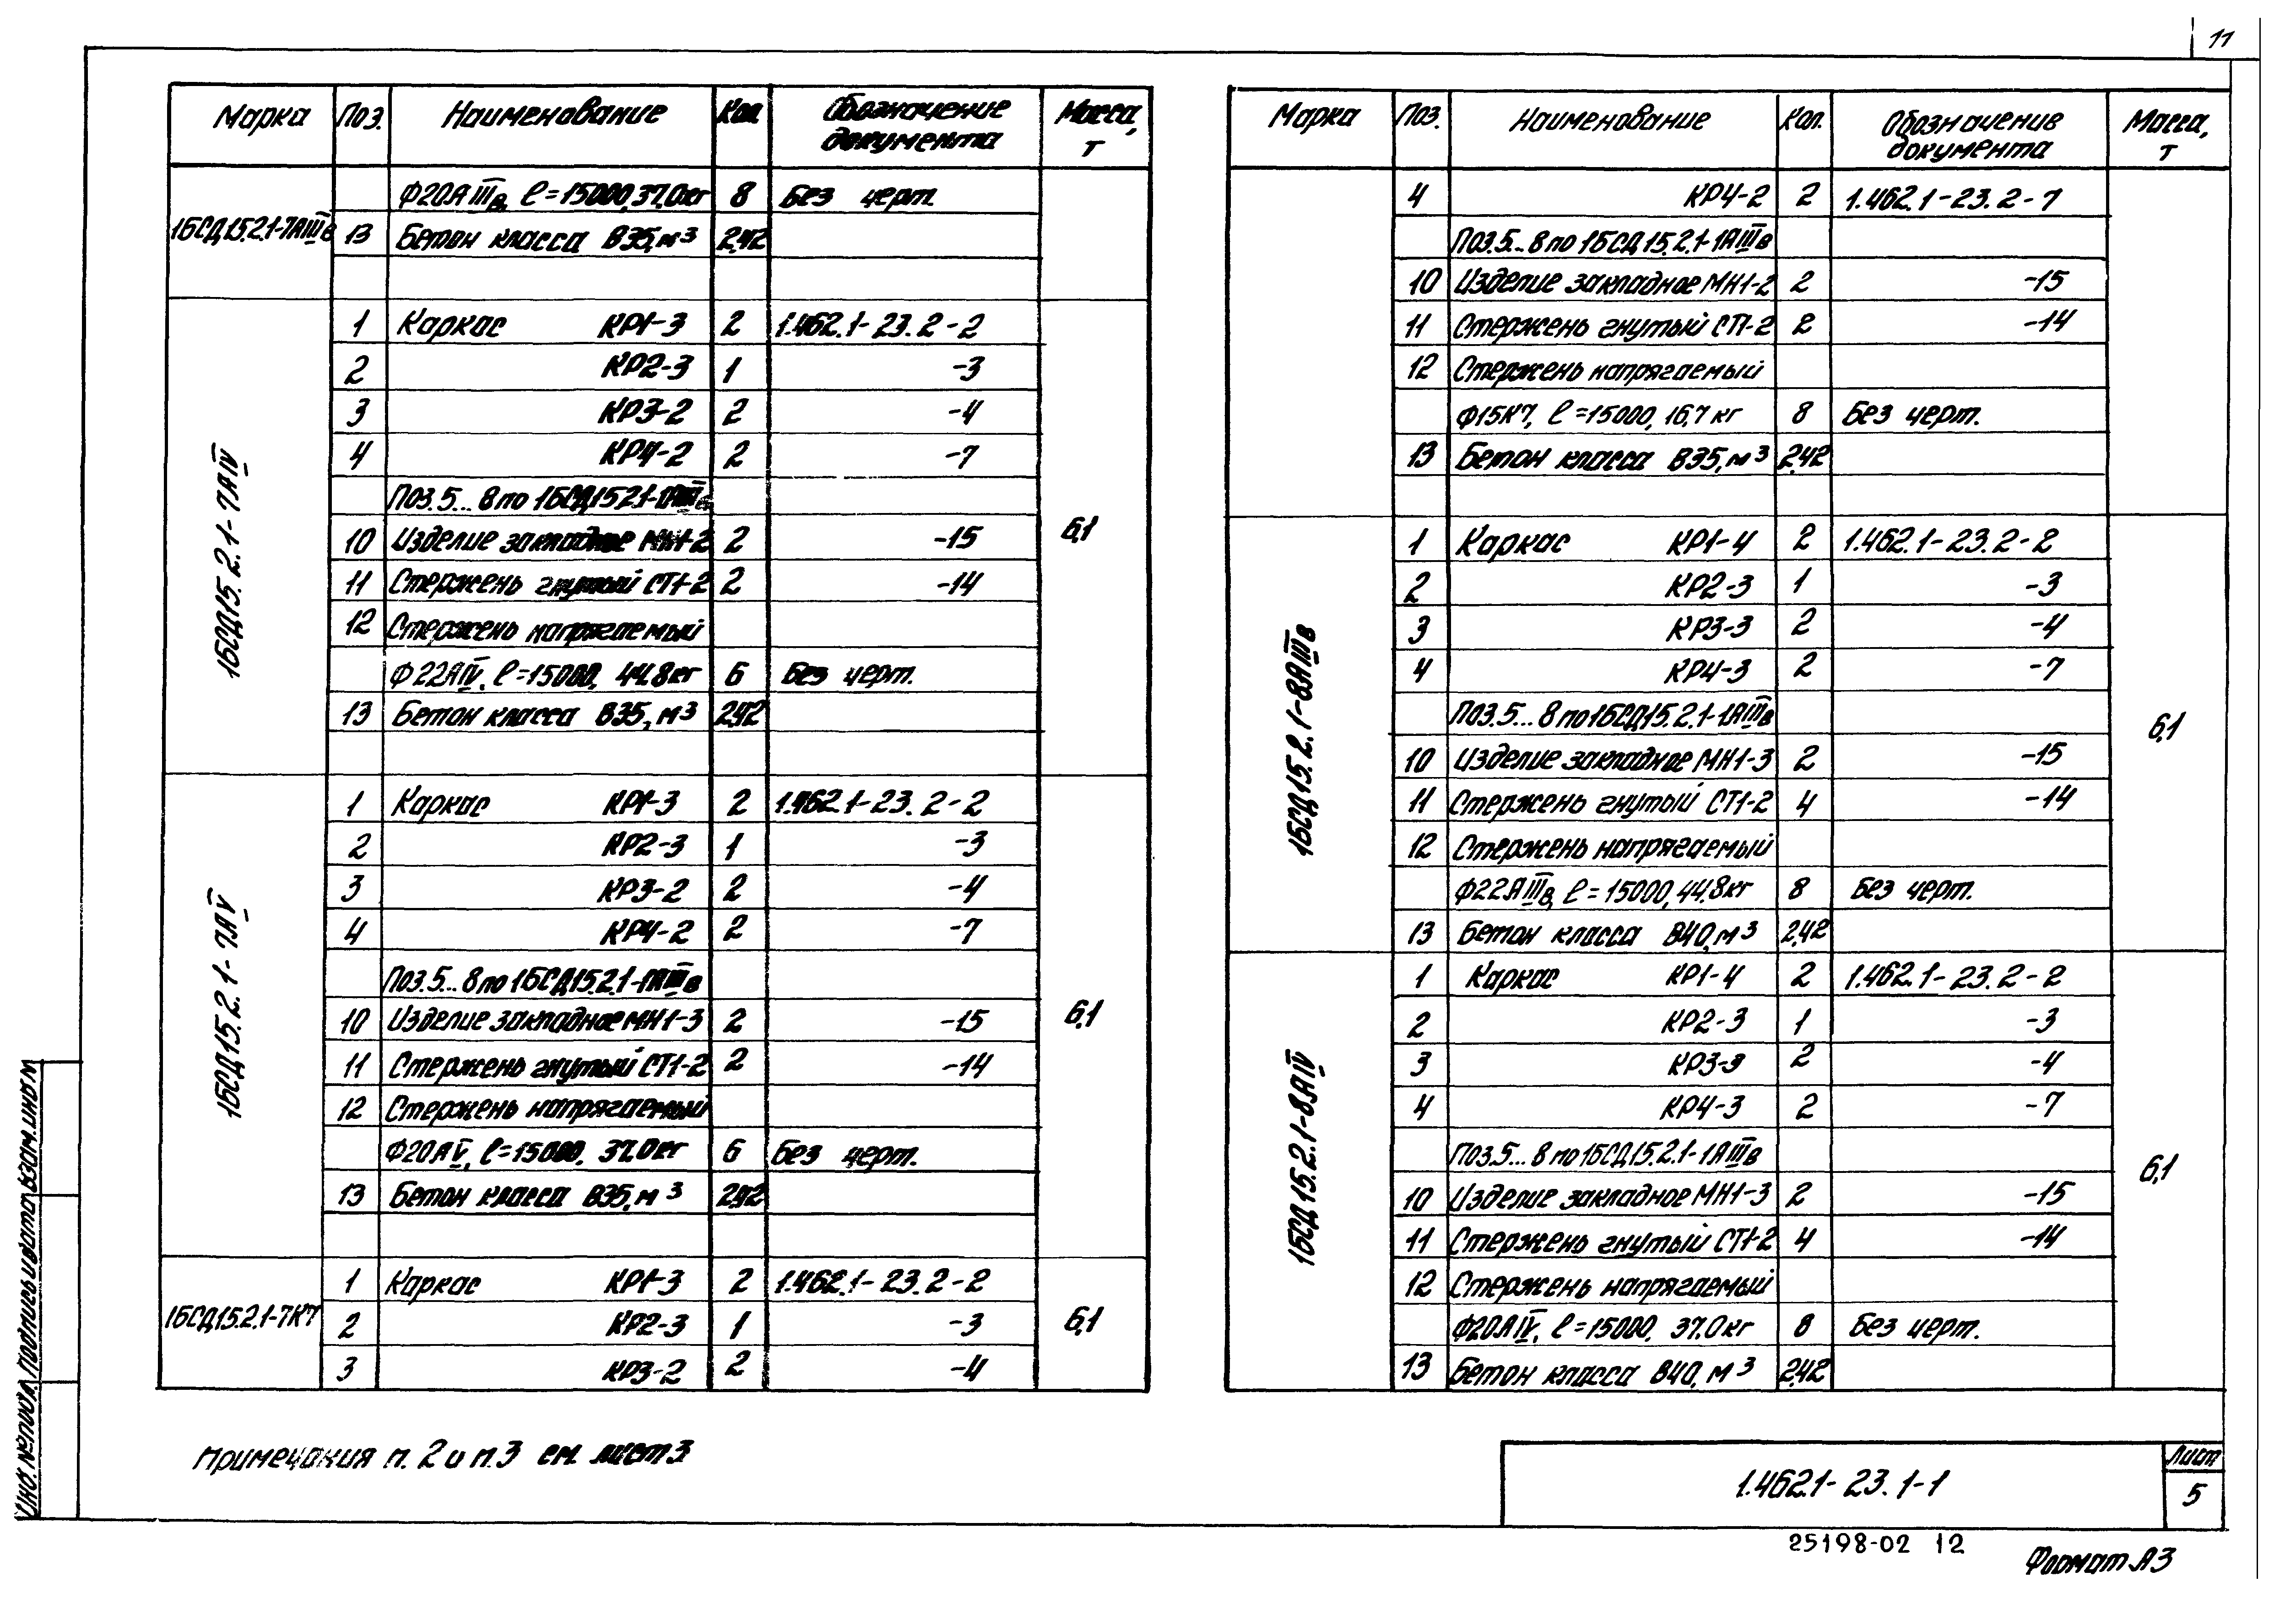 11
Марка Поз. Наименование Кол. Обозначение документа Масса, т
Ф20АIIIв, ℓ=15000, 37.0кг 8 Без черт.
1БСД15.2.1-7АIIIв 13 Бетон класса В35, м³ 2,42
1БСД15.2.1-7АIV
1 Каркас КР1-3 2 1.462.1-23.2-2
2 КР2-3 1 -3
3 КР3-2 2 -4
4 КР4-2 2 -7
Поз.5...8 по 1БСД15.2.1-1АIIIв
10 Изделие закладное МН1-2 2 -15
6,1
11 Стержень гнутый СТ1-2 2 -14
12 Стержень напрягаемый
Ф22АIV, ℓ=15000, 44.8кг 6 Без черт.
13 Бетон класса В35, м³ 2,42
1БСД15.2.1-7АV
1 Каркас КР1-3 2 1.462.1-23.2-2
2 КР2-3 1 -3
3 КР3-2 2 -4
4 КР4-2 2 -7
Поз.5...8 по 1БСД15.2.1-1АIIIв
10 Изделие закладное МН1-3 2 -15
6,1
11 Стержень гнутый СТ1-2 2 -14
12 Стержень напрягаемый
Ф20АV, ℓ=15000, 37.0кг 6 Без черт.
13 Бетон класса В35, м³ 2,42
1БСД15.2.1-7К7
1 Каркас КР1-3 2 1.462.1-23.2-2
2 КР2-3 1 -3 6,1
3 КР3-2 2 -4
Марка Поз. Наименование Кол. Обозначение документа Масса, т
4 КР4-2 2 1.462.1-23.2-7
Поз.5...8 по 1БСД15.2.1-1АIIIв
10 Изделие закладное МН1-2 2 -15
11 Стержень гнутый СТ1-2 2 -14
12 Стержень напрягаемый
Ф15К7, ℓ=15000, 16,7 кг 8 Без черт.
13 Бетон класса В35, м³ 2,42
1БСД15.2.1-8АIIIв
1 Каркас КР1-4 2 1.462.1-23.2-2
2 КР2-3 1 -3
3 КР3-3 2 -4
4 КР4-3 2 -7
Поз.5...8 по 1БСД15.2.1-1АIIIв
6,1
10 Изделие закладное МН1-3 2 -15
11 Стержень гнутый СТ1-2 4 -14
12 Стержень напрягаемый
Ф22АIIIв, ℓ=15000, 44.8кг 8 Без черт.
13 Бетон класса В40, м³ 2,42
1БСД15.2.1-8АIV
1 Каркас КР1-4 2 1.462.1-23.2-2
2 КР2-3 1 -3
3 КР3-3 2 -4
4 КР4-3 2 -7
Поз.5...8 по 1БСД15.2.1-1АIIIв
6,1
10 Изделие закладное МН1-3 2 -15
11 Стержень гнутый СТ1-2 4 -14
12 Стержень напрягаемый
Ф20АIV, ℓ=15000, 37.0кг 8 Без черт.
13 Бетон класса В40, м³ 2,42
Примечания п.2 и п.3 см. лист 3
1.462.1-23.1-1
Лист
5
25198-02 12
Формат А3
Инв. № подл. Подпись и дата Взам. инв №